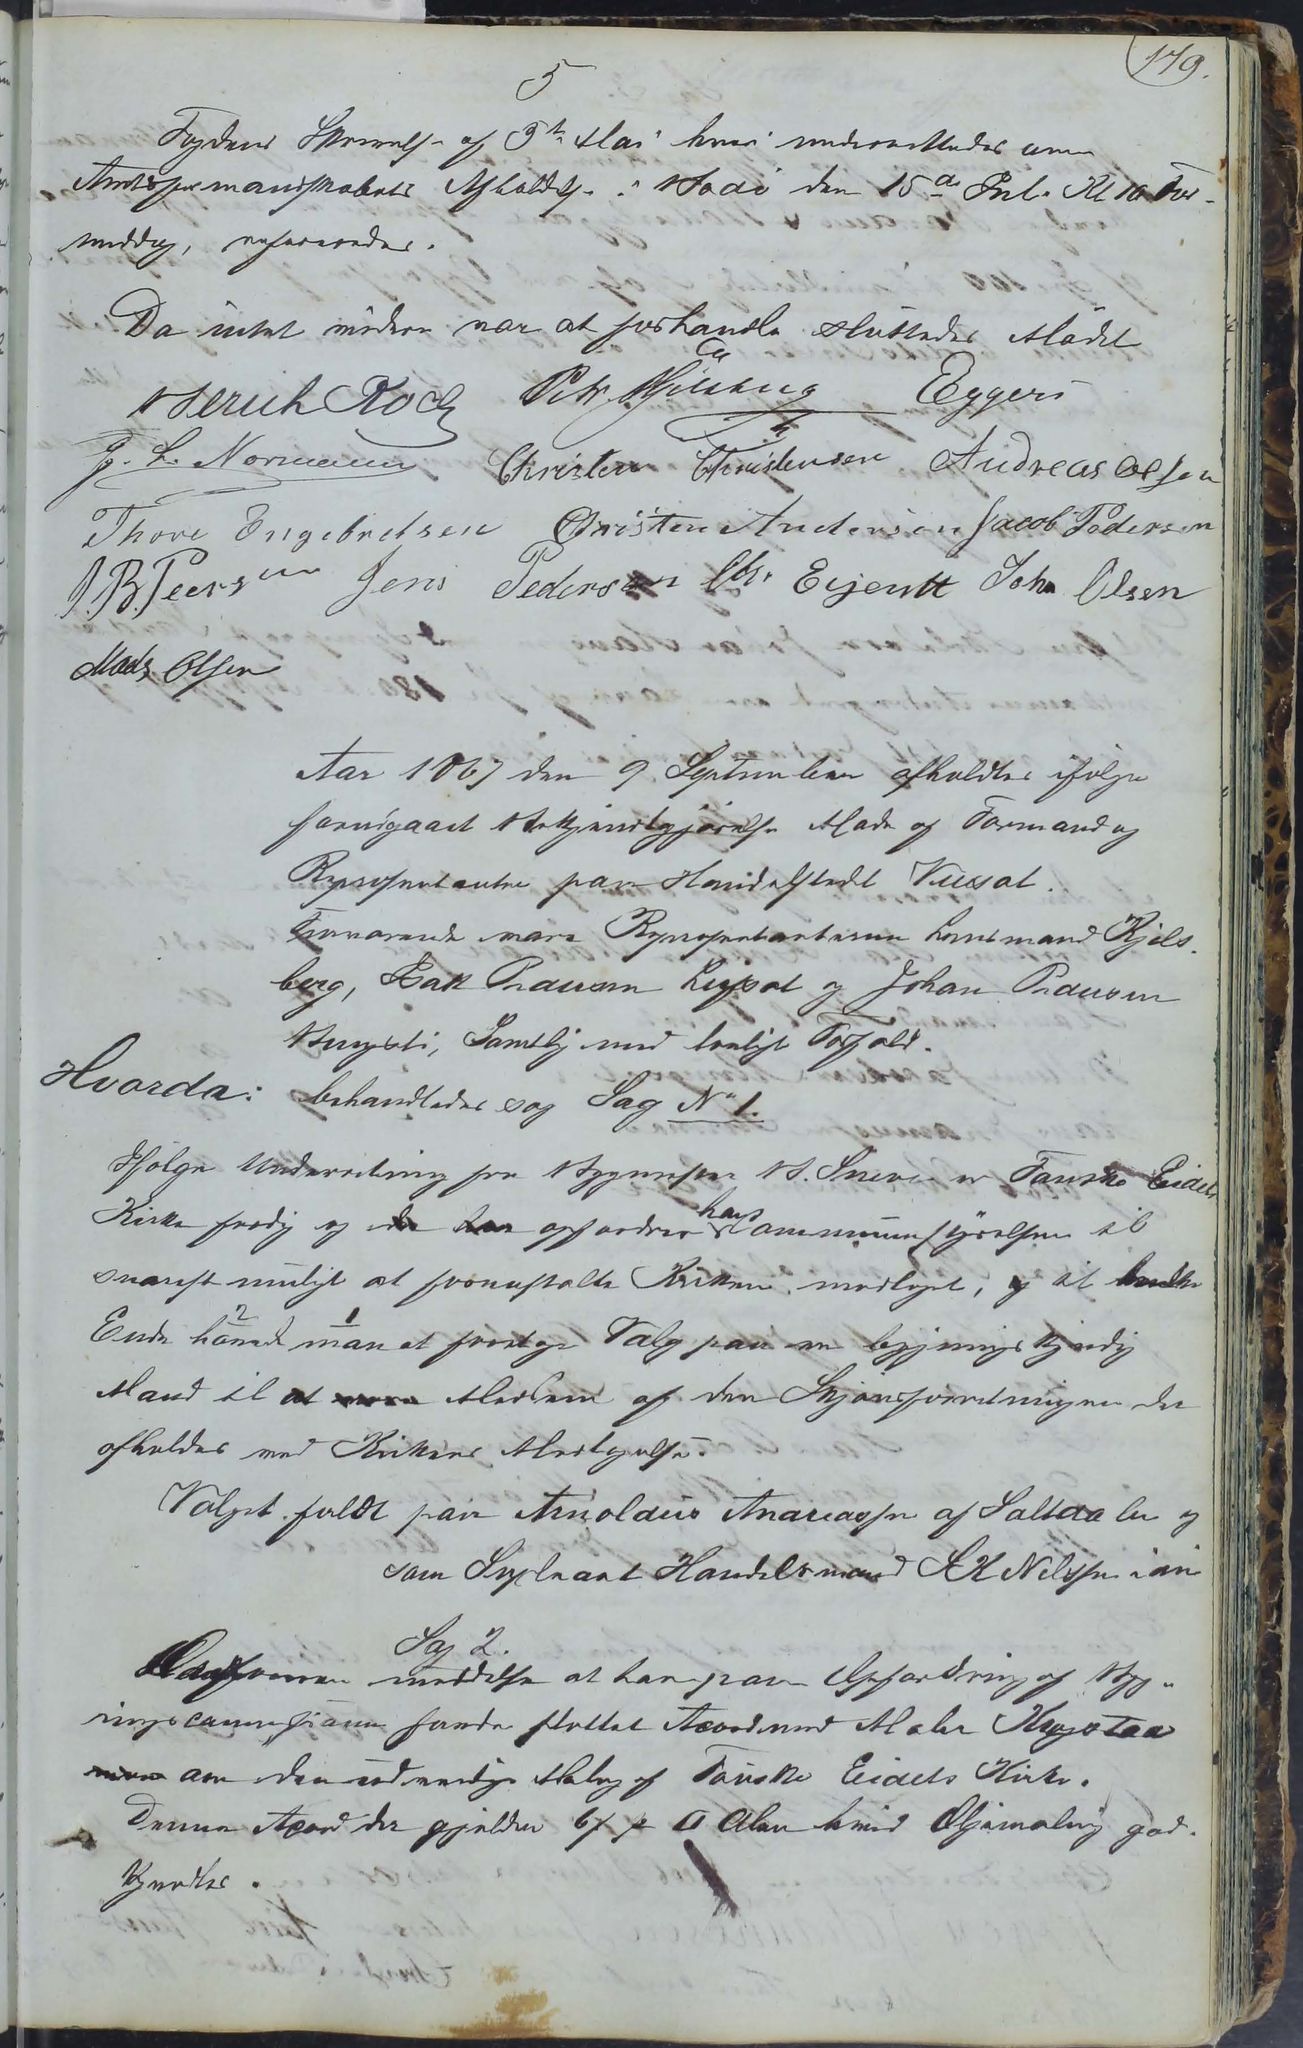 179.
5
Fogdens Skrivelse af 3die Mai hvori underrettedes om
Amtsformandskabets Afholdelse i Bodø den 15de Juli Kl 10 For-
middag, refereredes.
Da intet videre var at forhandle sluttedes Mødet
Ulerich Koch Petr. Kjelsberg Eggers
J. L. Normann Christen Christensen Andreas Olsen
Thore Engebretsen Christen Andersen Jacob Pedersen
J. B. Peersen Jens Pedersen Chr. Ejentt John Olsen
Mads Olsen
Aar 1867 den 9 September afholdtes ifølge
forudgaaet Bekjendtgjørelse Møde af Formænd og
Repræsentanter paa Handelsstedet Vensæt.
Fraværende vare Repræsentanterne Lensmand Kjels-
berg, Isak Paulsen Leifset og Johan Paulsen
Samtlig med lovligt Forfald.
Hvorda: behandledes sag Sag No 1.
Ifølge Underretning fra Bygmester Sneve er Fauske Eidets
Kirke færdig og opfordrer han Communestyrelsen til
snarest muligt at foranstalte Kirken modtaget, og til
Ende havde 2 man 1 at foretage Valg paa en bygningskyndig
Mand til Medlem af den Skjønsforretningen der
afholdes ved Kirkens Modtagelse.
Valget faldt paa Arnoldus Andreassen af Saltdalen og
som Suppleant Handelsmand S K Nilssen
Sag 2.
Ordføreren meddelte at han paa Opfordring af Byg-
ningscommissionen havde sluttet Accord med Maler
om den udvendige Maling af Fauske Eidets Kirke.
Denne Accord der gjelder 6 β pr □ Alen hvid Oljemaling god-
kjendtes.